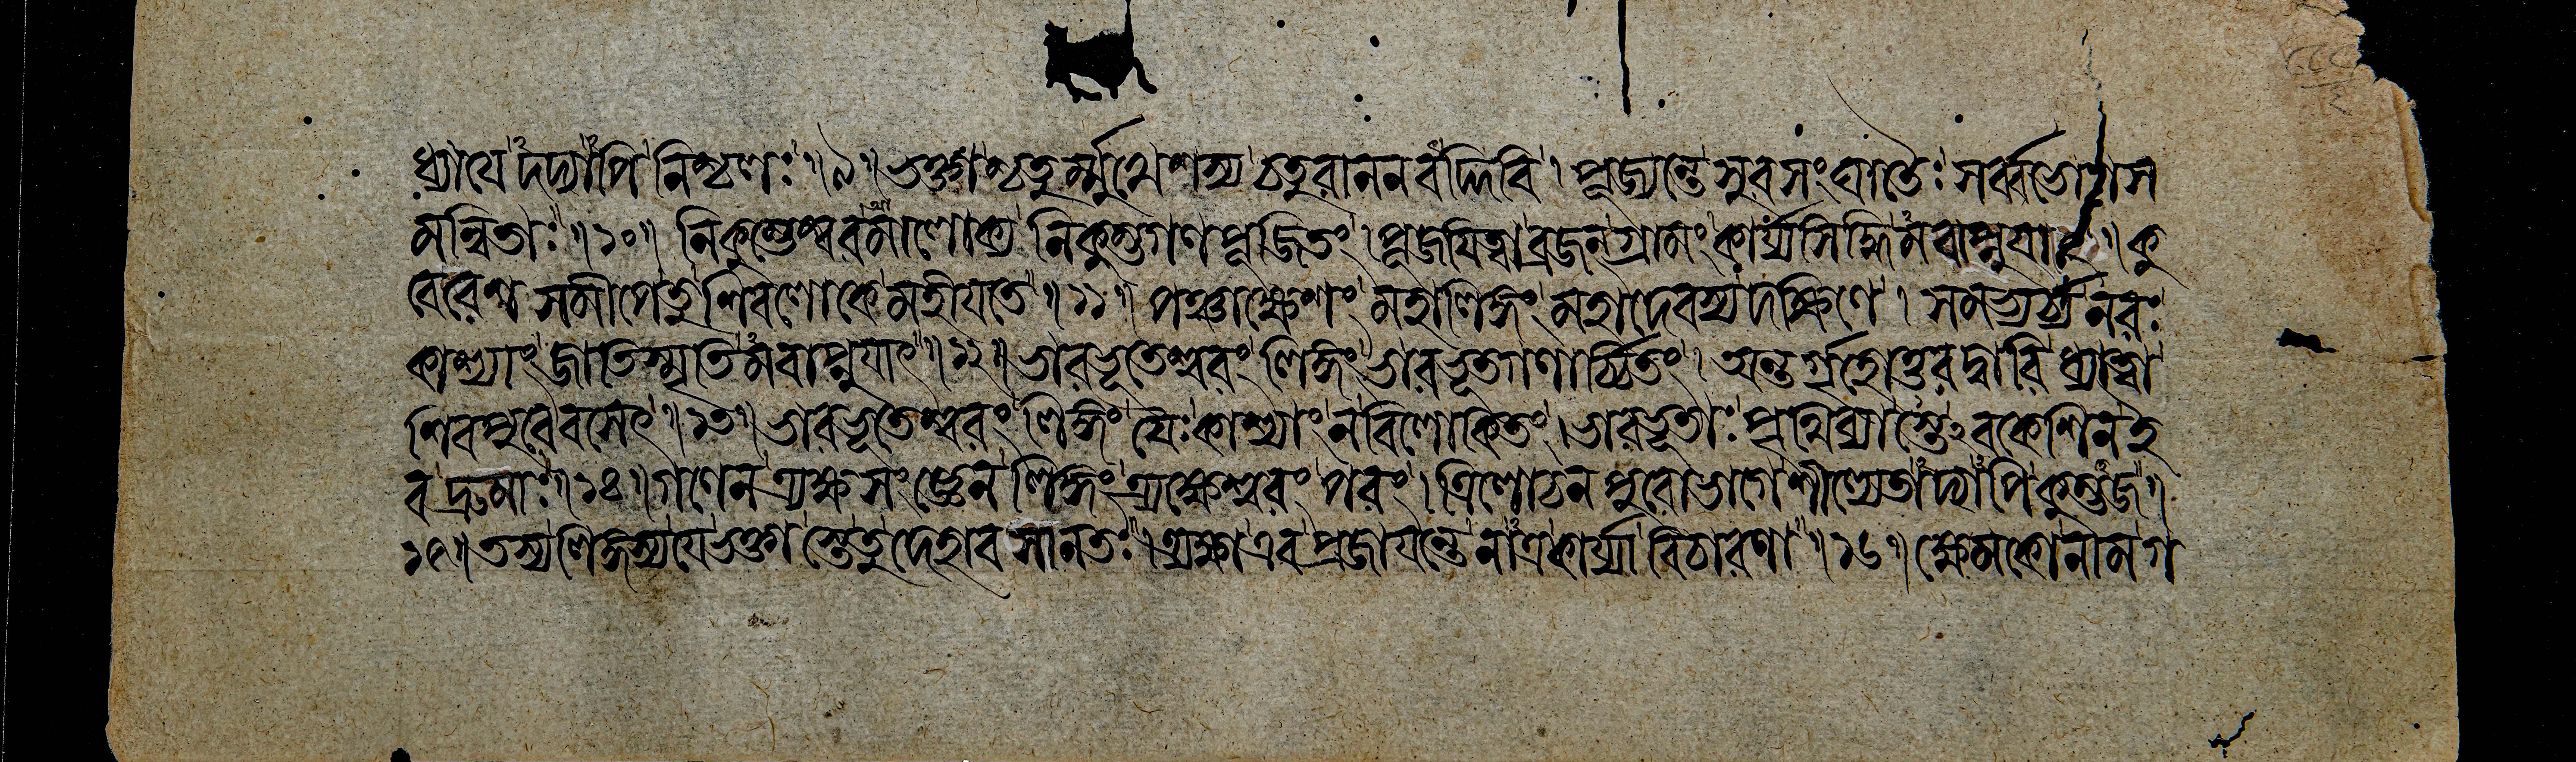 ধ্যাযেদদ্যাপি নিশ্চলঃ ॥ ৯ ॥ ভক্তাশ্চতুর্ম্মুখেশস্য চতুরাননবদ্দিবি । পূজ্যন্তে সুরসংঘাতৈঃ সর্ব্বভোগস
মন্বিতাঃ ॥ ১০ ॥ নিকুম্ভেশ্বরমালোক্য নিকুম্ভগণপূজিতং । পূজযিত্বা ব্রজন্ গ্রামং কার্য্যসিদ্ধিমবাপ্নুযাৎ ॥ কু
বেরেশ সমীপেতু শিবলোকে মহীযতে ॥ ১১ ॥ পঞ্চাক্ষেশং মহালিঙ্গং মহাদেবস্য দক্ষিণে । সমভ্যর্চ্চ্য নরঃ
কাশ্যাং জাতিস্মৃতিমবাপ্নুযাৎ ॥ ১২ ॥ ভারভূতেশ্বরং লিঙ্গং ভারভূতগণার্চ্চিতং । অন্তর্গৃহোত্তরদ্বারি ধ্যাত্বা
শিবপুরে বসেৎ ॥ ১৩ ॥ ভারভূতেশ্বরং লিঙ্গং যৈঃ কাশ্যাং ন বিলোকিতং । ভারভূতাঃ পৃথিব্যাস্তেঽবকেশিন ই
ব দ্রুমাঃ ॥ ১৪ ॥ গণেন ত্র্যক্ষসংজ্ঞেন লিঙ্গং ত্র্যক্ষেশ্বরং পরং । ত্রিলোচনপুরোভাগে শীল্যেতাদ্যাপি কুম্ভজ ॥
১৫ ॥ তস্য লিঙ্গস্য যে ভক্তাস্তেতু দেহাবসানতঃ । ত্র্যক্ষা এব প্রজাযন্তে নাত্র কার্য্যা বিচারণা ॥ ১৬ ॥ ক্ষেমকো নাম গ